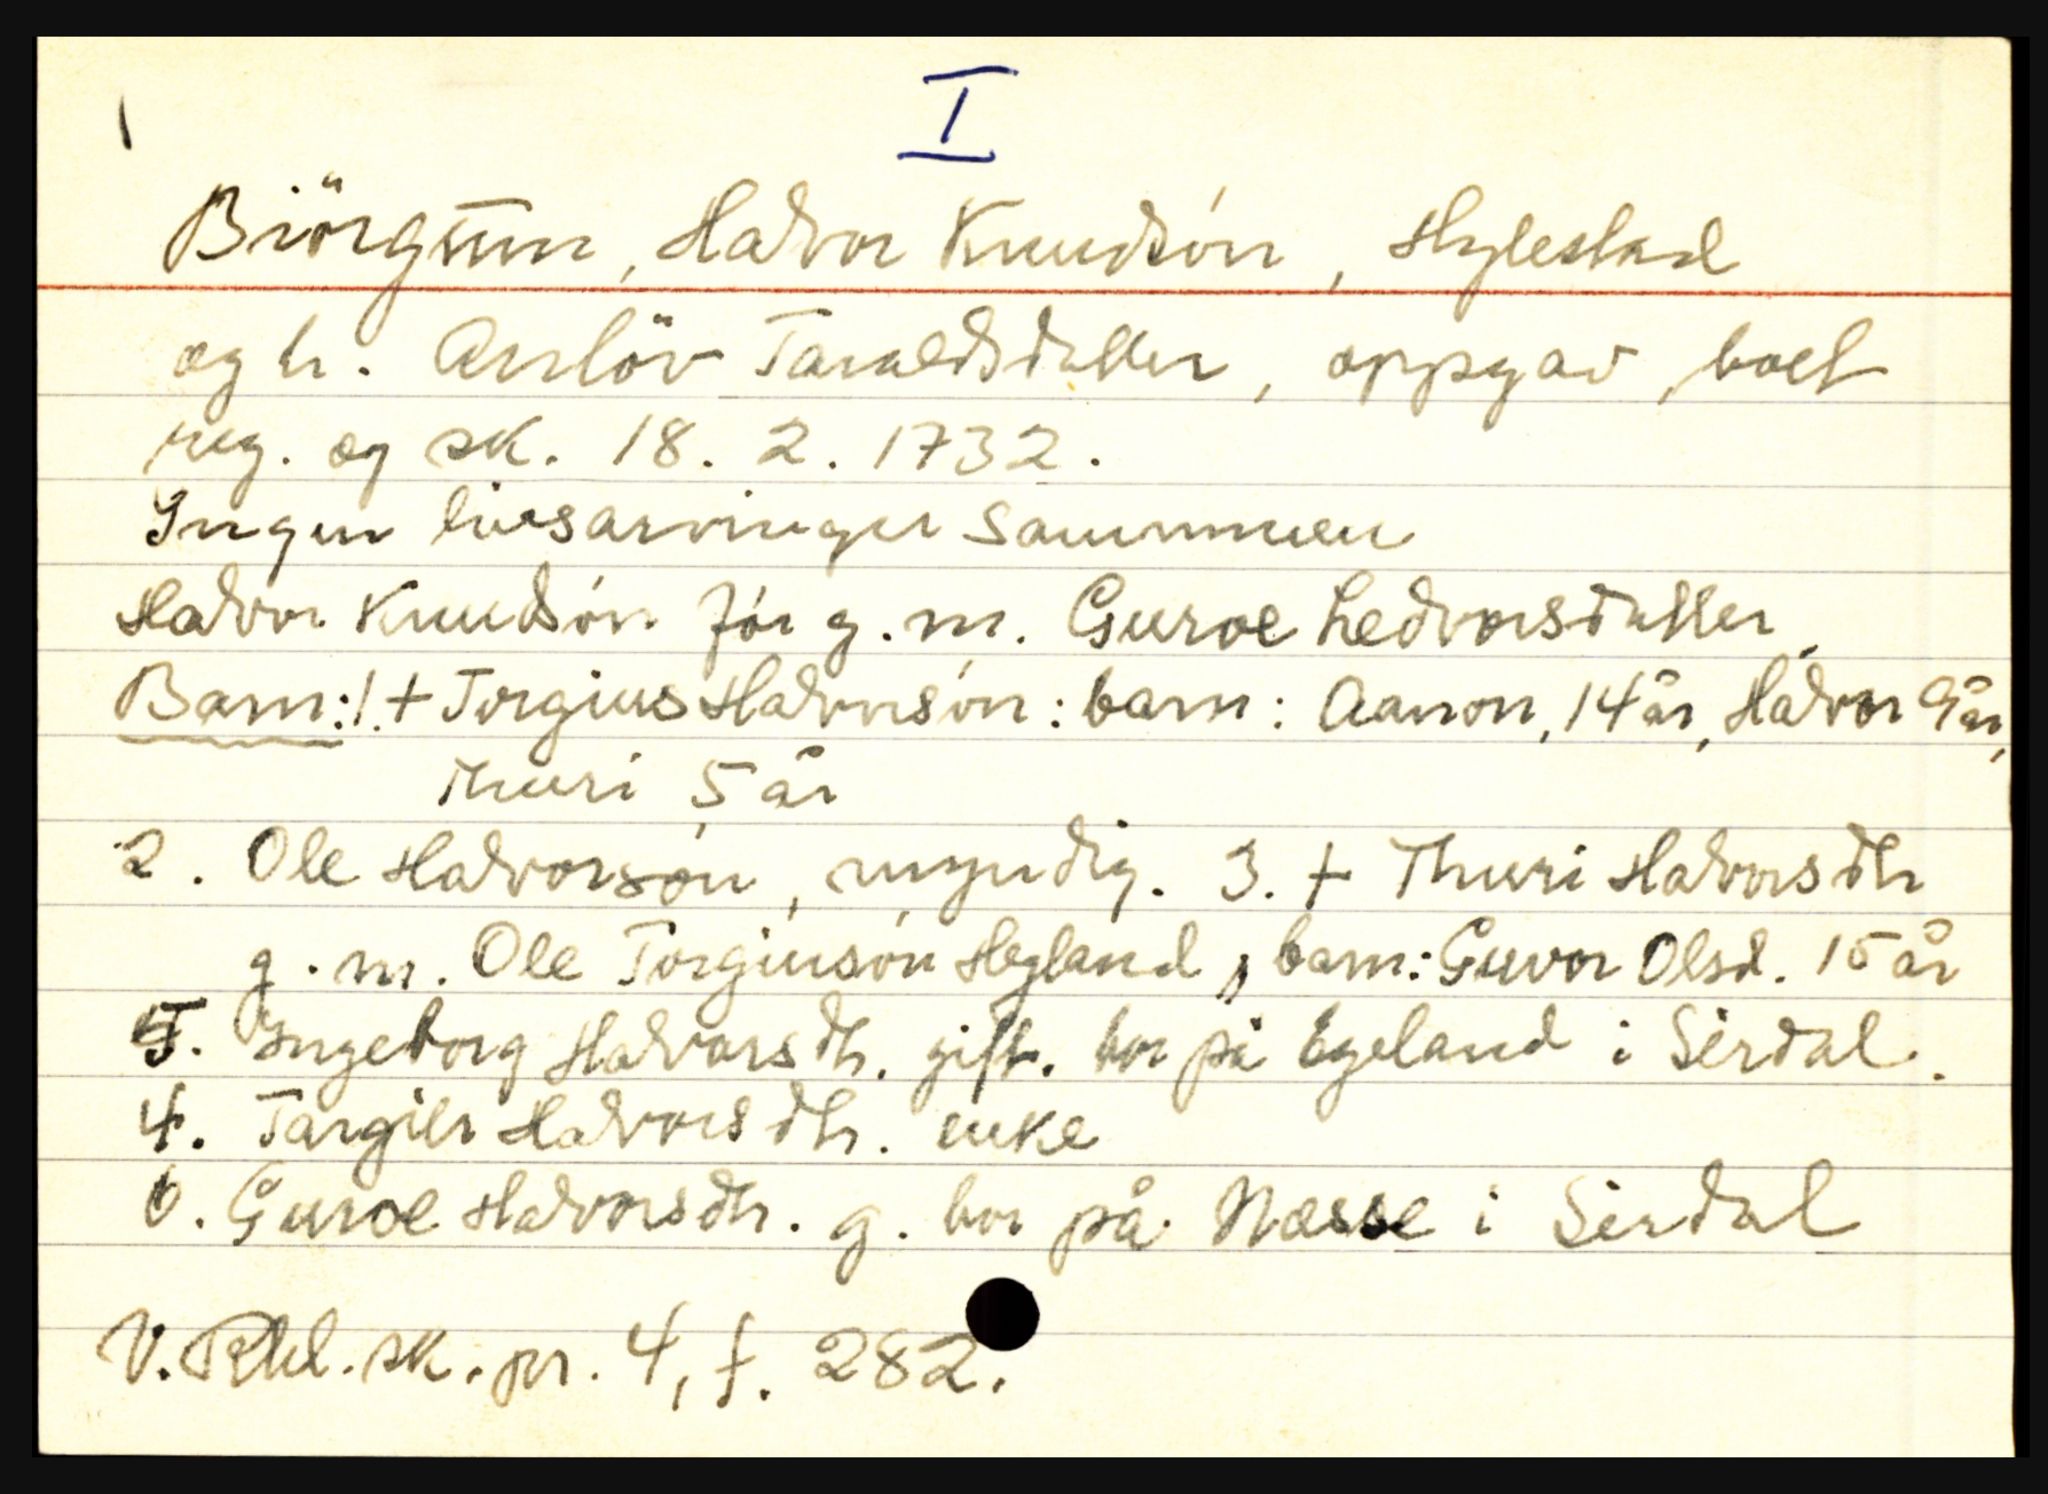 I
Biörgum, Halvor Knudsön, Hylestad
og h. Anlöv Taraldsdatter, oppgav boet
reg. og sk. 18. 2. 1732.
Ingen livsarvinger sammen
Halvor Knudsón før g. m. Guroe Ledvorsdatter
Barn: 1. + Torgius Halvorsón: barn: Aanon, 14 år, Halvor 9 år,
Thuri 5 år
2. Ole Halvorsøn, myndig. 3. + Thuri Halvorsdtr
g. m. Ole Torgiusón Hegland, barn: Guvor Olsd. 15 år
5. Ingeborg Halvorsdtr. gift. bor på Egeland i Sirdal.
4. Targier Halvorsdtr. enke
6. Guroe Halvorsdtr. g. bor på Næsse i Sirdal
V. Rbd. sk. pr. 4, f. 282.